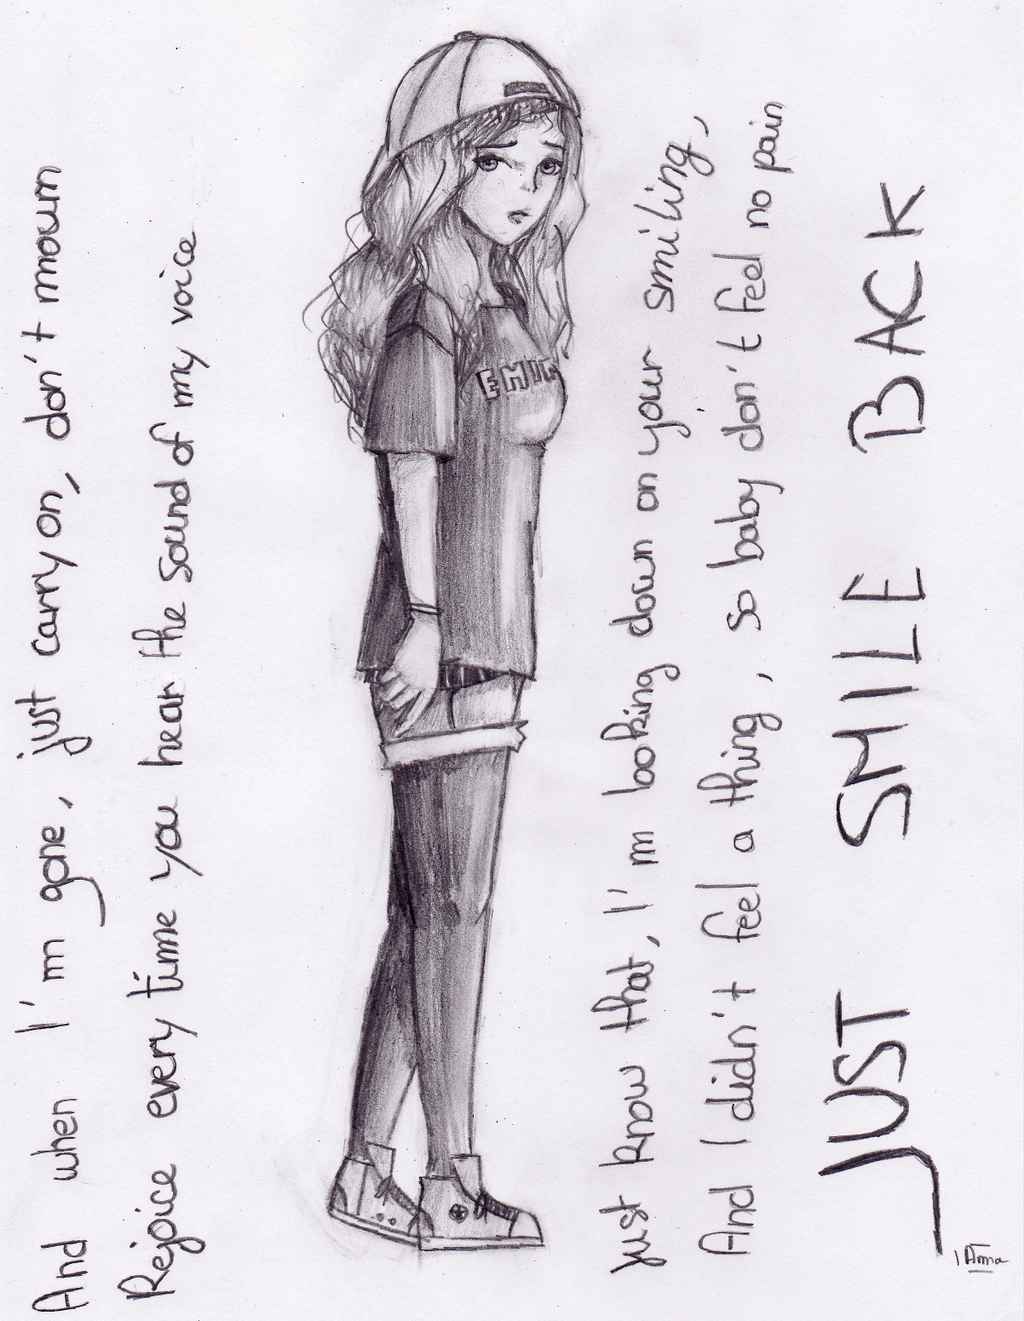 And when I'm gone, just carry on, don't mourn
Rejoice every time you hear the sound of my voice
EMIN
Just know that, I'm looking down on your smiling,
And I didn't feel a thing, so baby don't feel no pain
JUST SMILE BACK
Anna